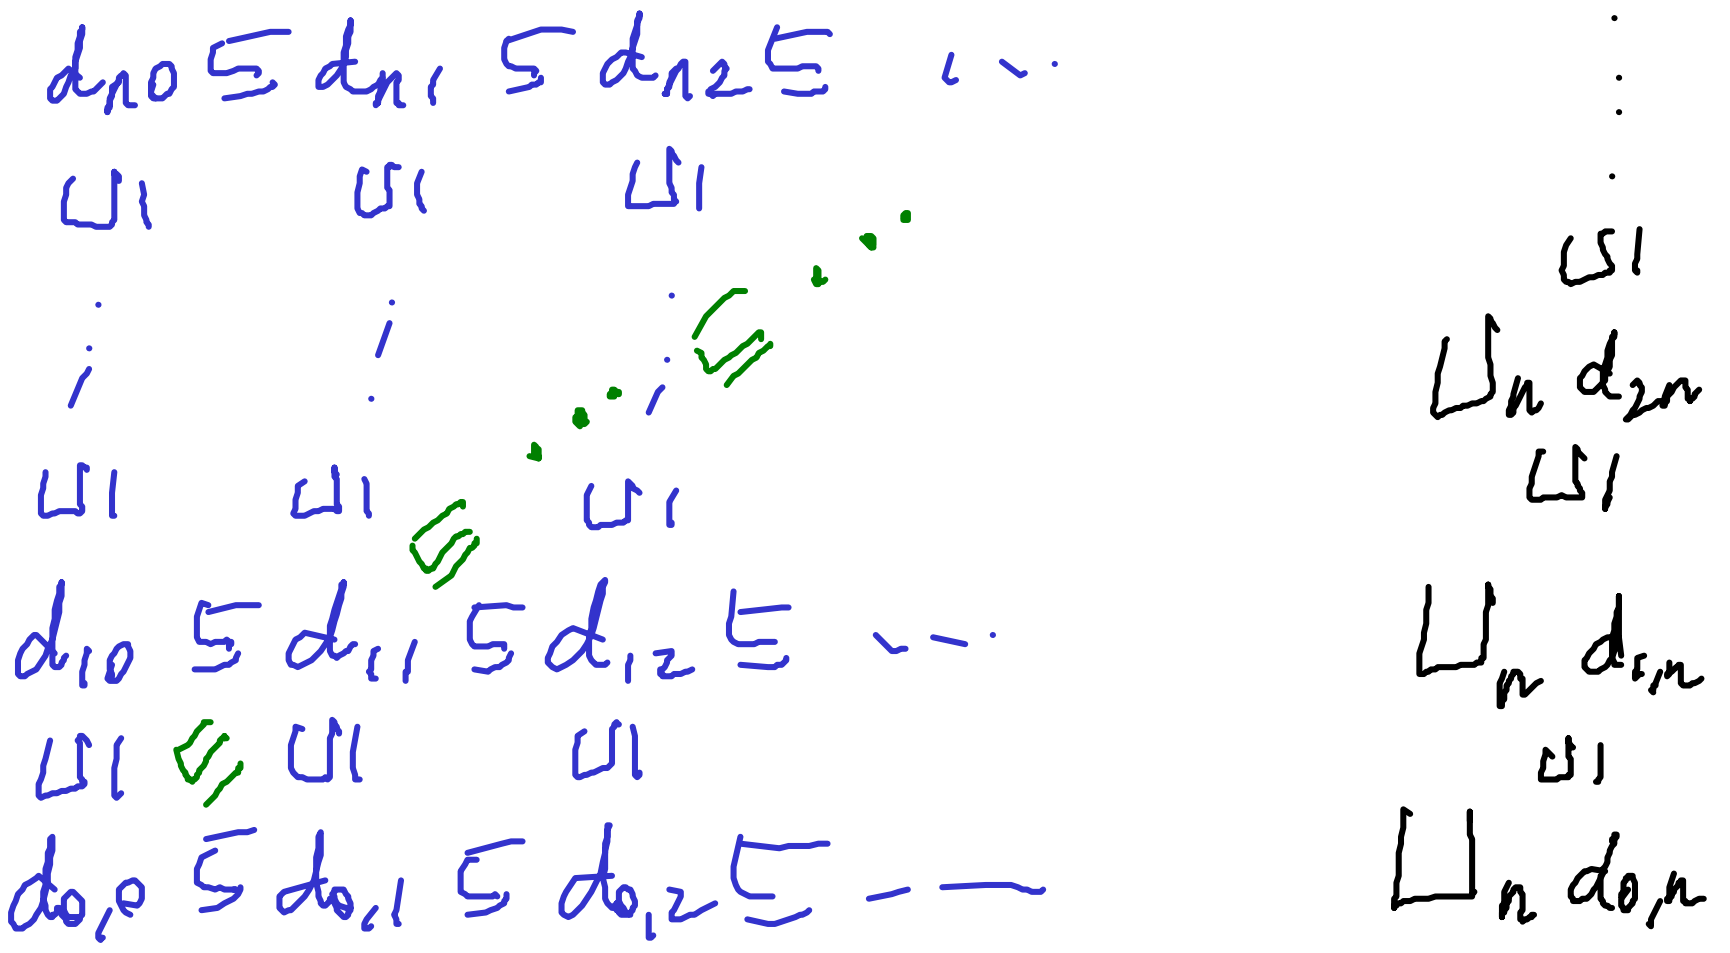 d_{n0} ⊑ d_{n1} ⊑ d_{n2} ⊑ ...
⊔| ⊔| ⊔|
⋮ ⋮ ⋮
⊔| ⊔| ⊔|
d_{10} ⊑ d_{11} ⊑ d_{12} ⊑ ...
⊔| ⊑ ⊔| ⊑ ... ⊔| ⊑ ...
d_{0,0} ⊑ d_{0,1} ⊑ d_{0,2} ⊑ ...
⋮
⊔|
⊔_n d_{2n}
⊔|
⊔_n d_{1,n}
⊔|
⊔_n d_{0,n}